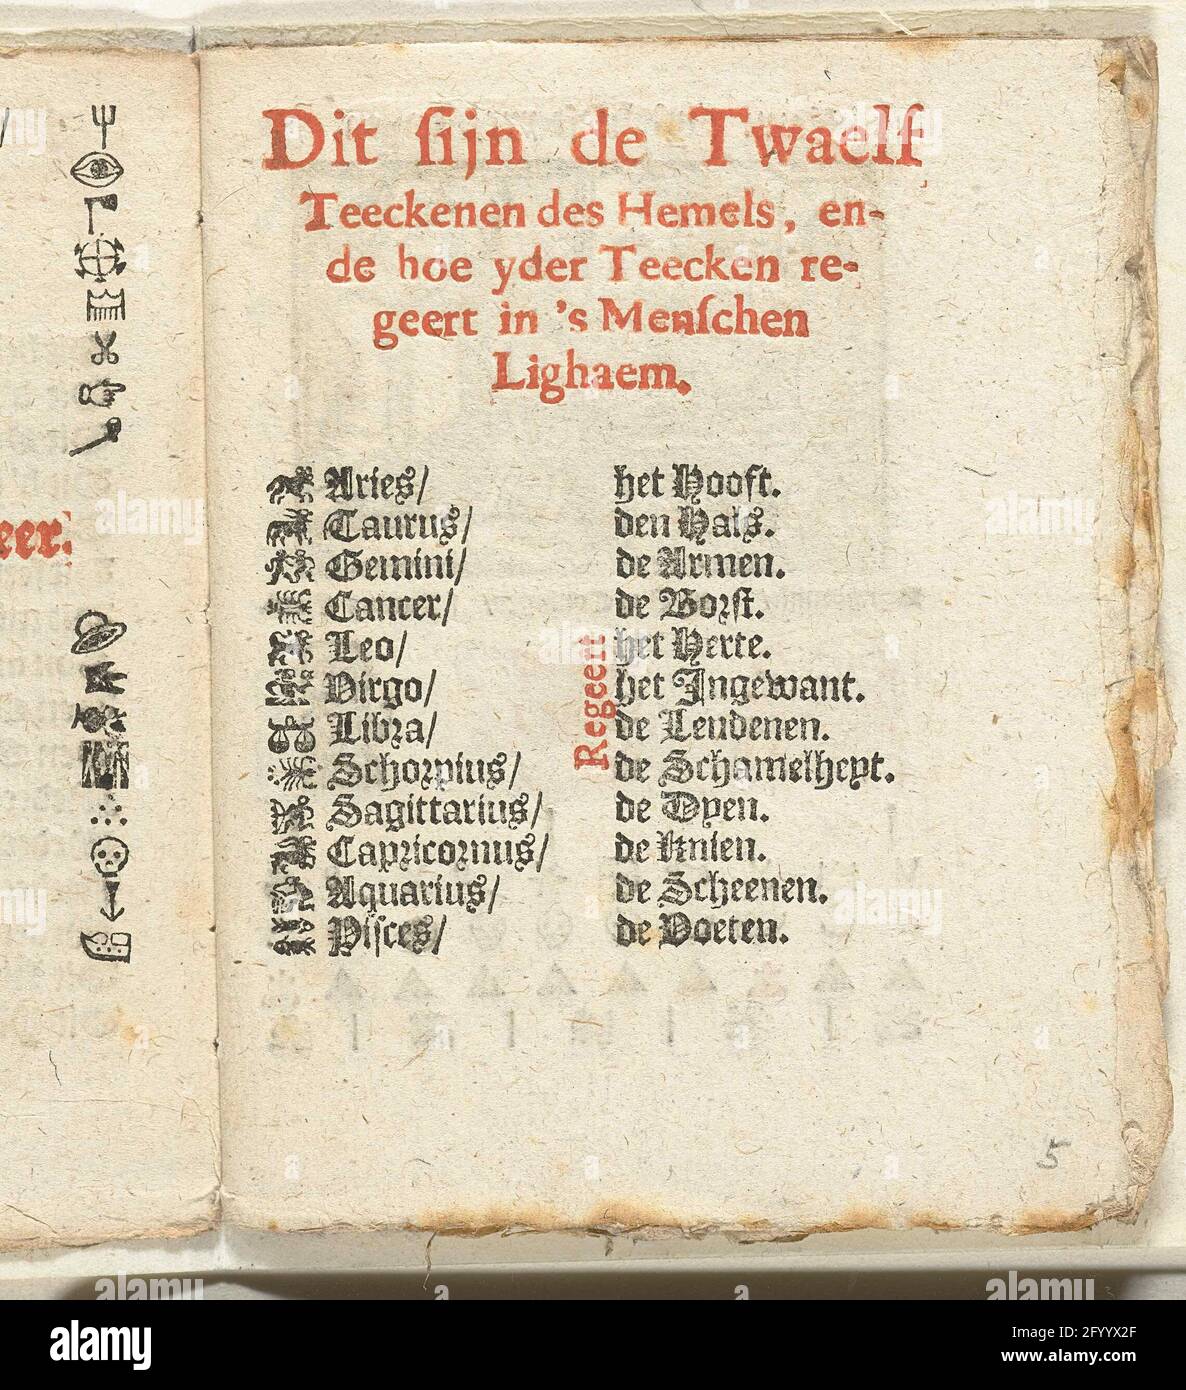 Dit ſijn de Twaelf
Teeckenen des Hemels, en-
de hoe yder Teecken re-
geert in 's Menſchen
Lighaem.
Aries/ het Hooft.
Taurus/ den Hals.
Gemini/ de Armen.
Cancer/ de Borſt.
Leo/ het Herte.
Virgo/ het Ingewant.
Libra/ de Leudenen.
Schorpius/ de Schamelheyt.
Sagittarius/ de Dyen.
Capricornus/ de Knien.
Aquarius/ de Scheenen.
Piſces/ de Voeten.
Regeert
eer.
5
alamy
Image ID: 2FYYX2F
www.alamy.com